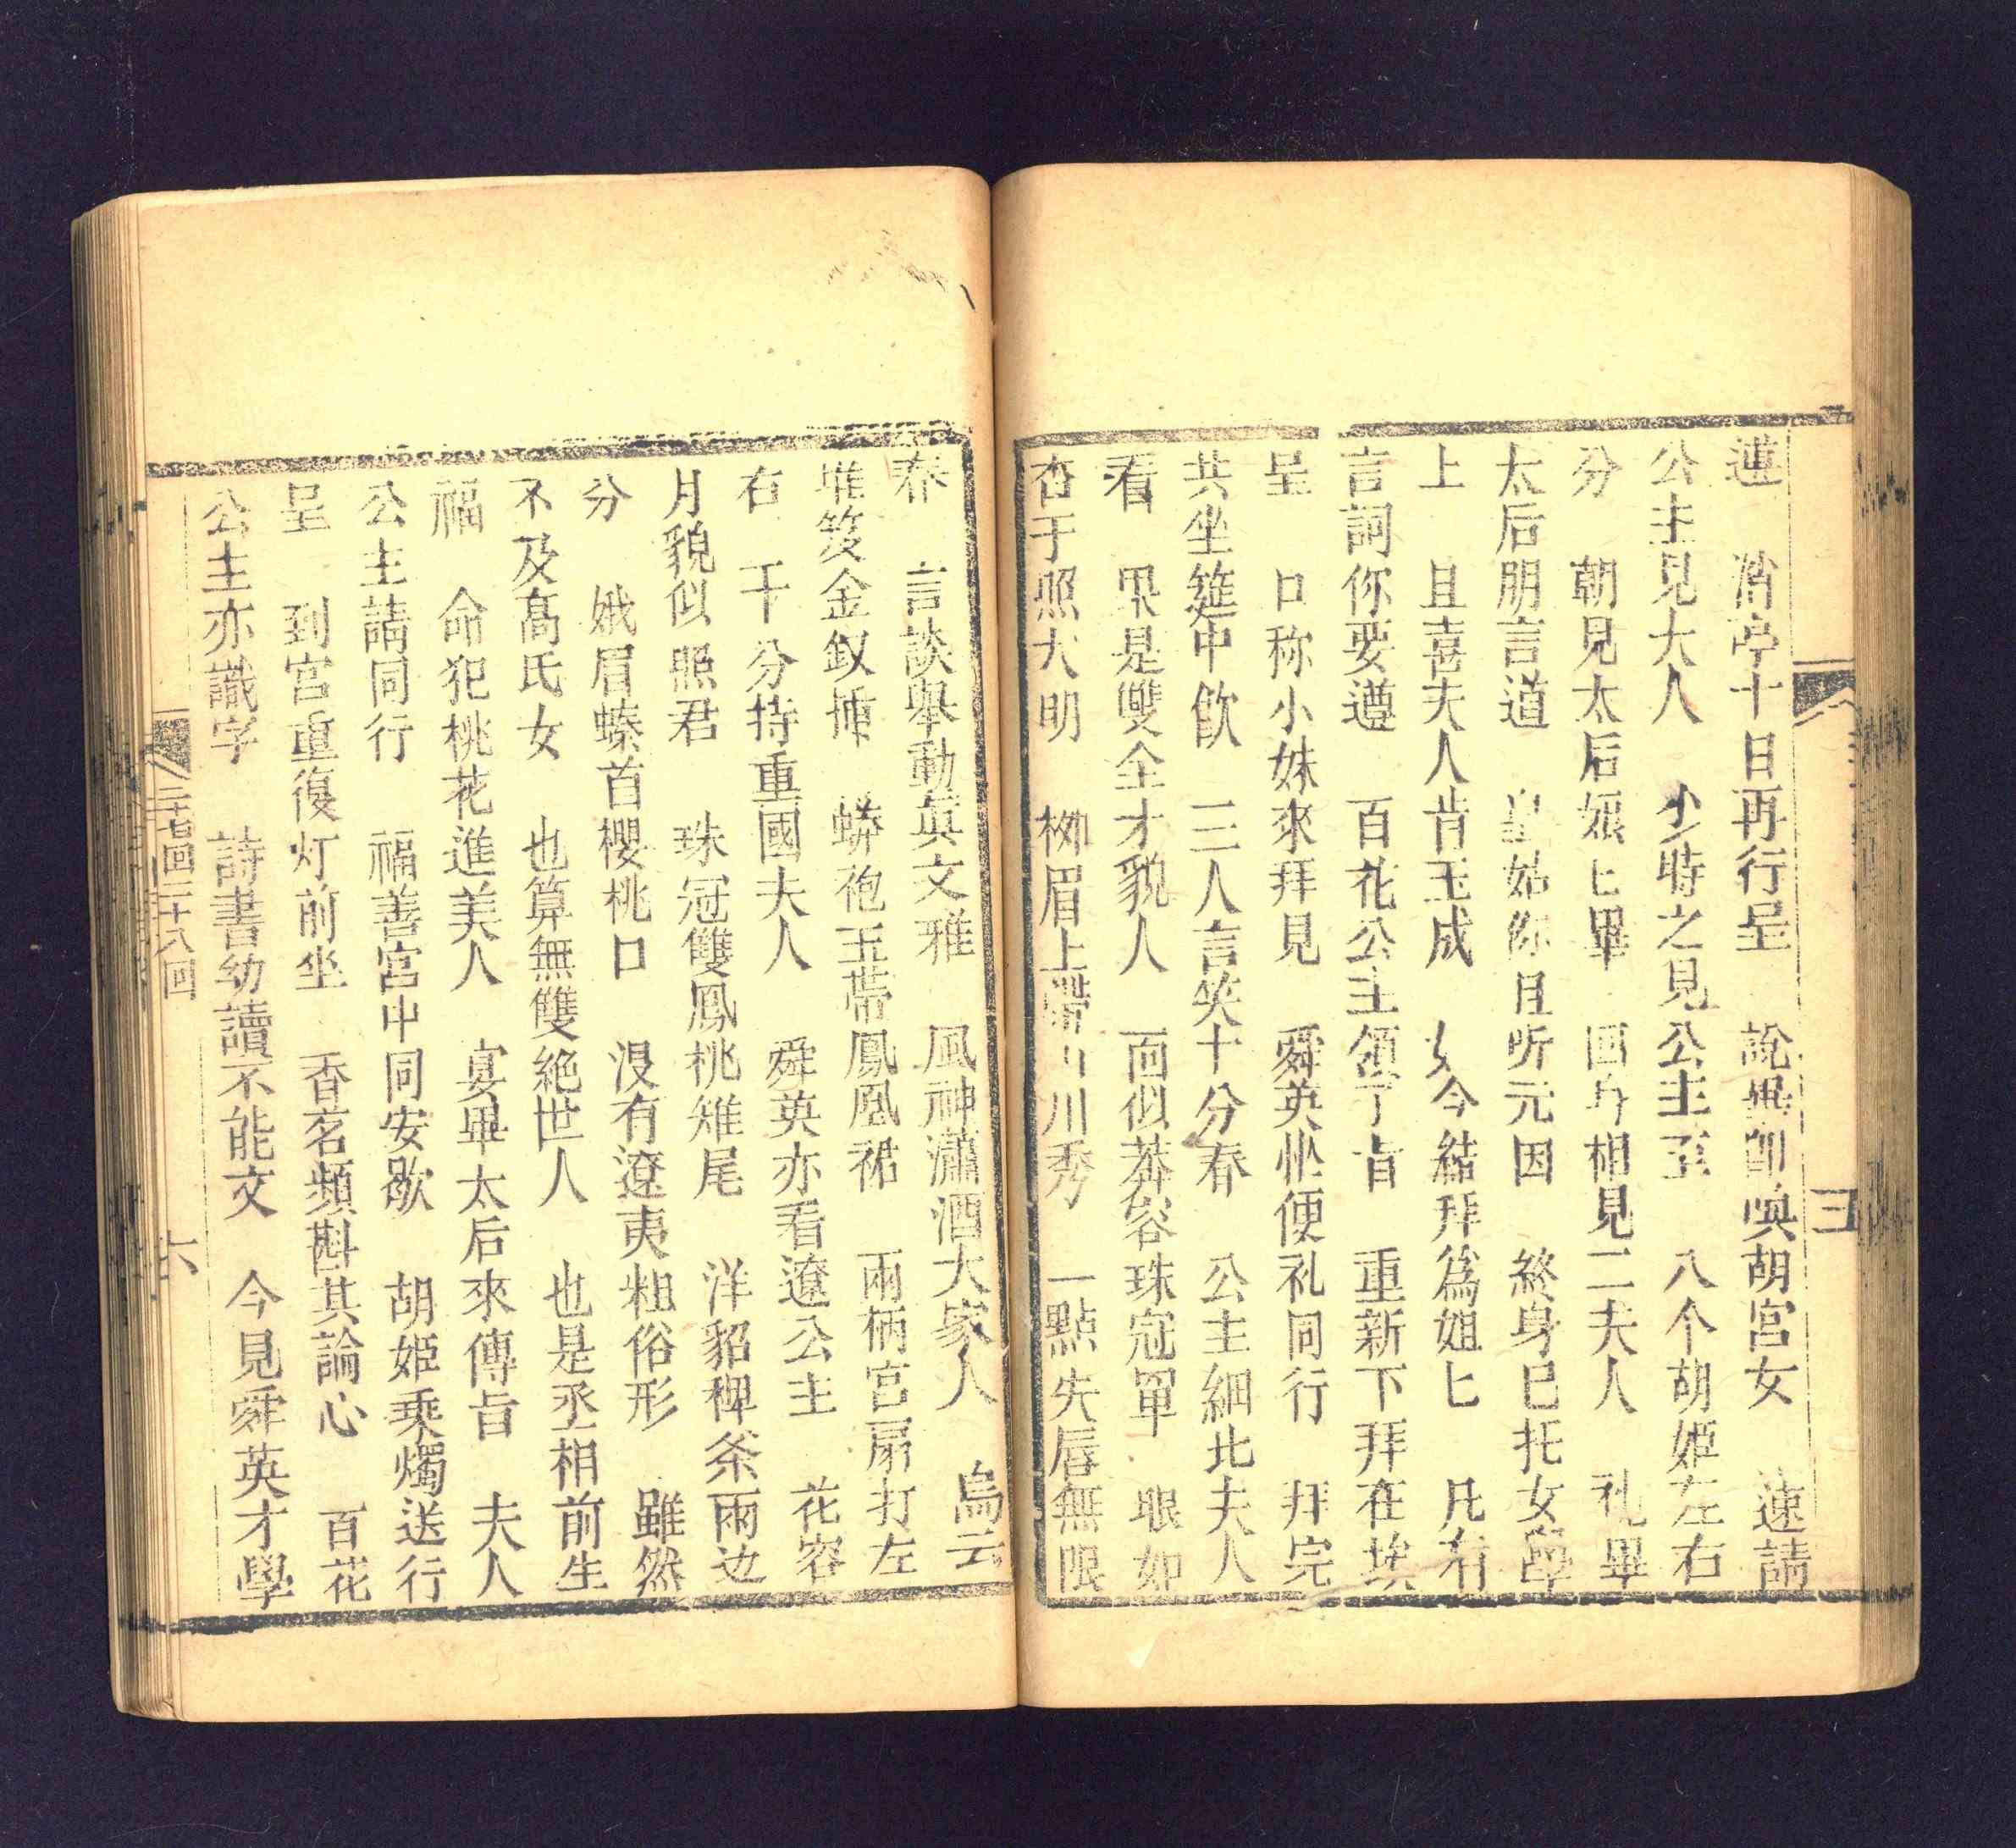 蓮　消停十日再行呈　說畢卽喚胡宮女　速請
公主見大人　少時之見公主至　八个胡姬左右
分　朝見太后娘匕畢　回身相見二夫人　礼畢
太后明言道　皇姑你且听元因　終身已托女
上　且喜夫人肯玉成　如今結拜爲姐匕　凡有
言詞你要遵　百花公主領了旨　重新下拜在埃
呈　口称小妹來拜見　舜英忙便礼同行　拜完
共坐筵中飲　三人言笑十分春　公主細比夫人
看　果是雙全才貌人　面似芙蓉珠冠單　眼如
杏子照大明　柳眉上帶山川秀　一點朱唇無限
春　言談舉動真文雅　風神瀟洒大家人　烏云
堆笈金釵揷　蟒袍玉帶鳳凰裙　兩柄宮扇打左
右　千分持重國夫人　舜英亦看遼公主　花容
月貌似照君　珠冠雙鳳桃雉尾　洋貂裨条兩边
分　娥眉螓首櫻桃口　没有遼夷粗俗形　雖然
不及高氏女　也算無雙絶世人　也是丞相前生
福　命犯桃花進美人　宴畢太后來傳旨　夫人
公主請同行　福善宮中同安歇　胡姬乘燭送行
呈　到宮重復灯前坐　香茗頻斟其論心　百花
公主亦識字　詩書幼讀不能文　今見舜英才學
二十七回二十八回　六
三